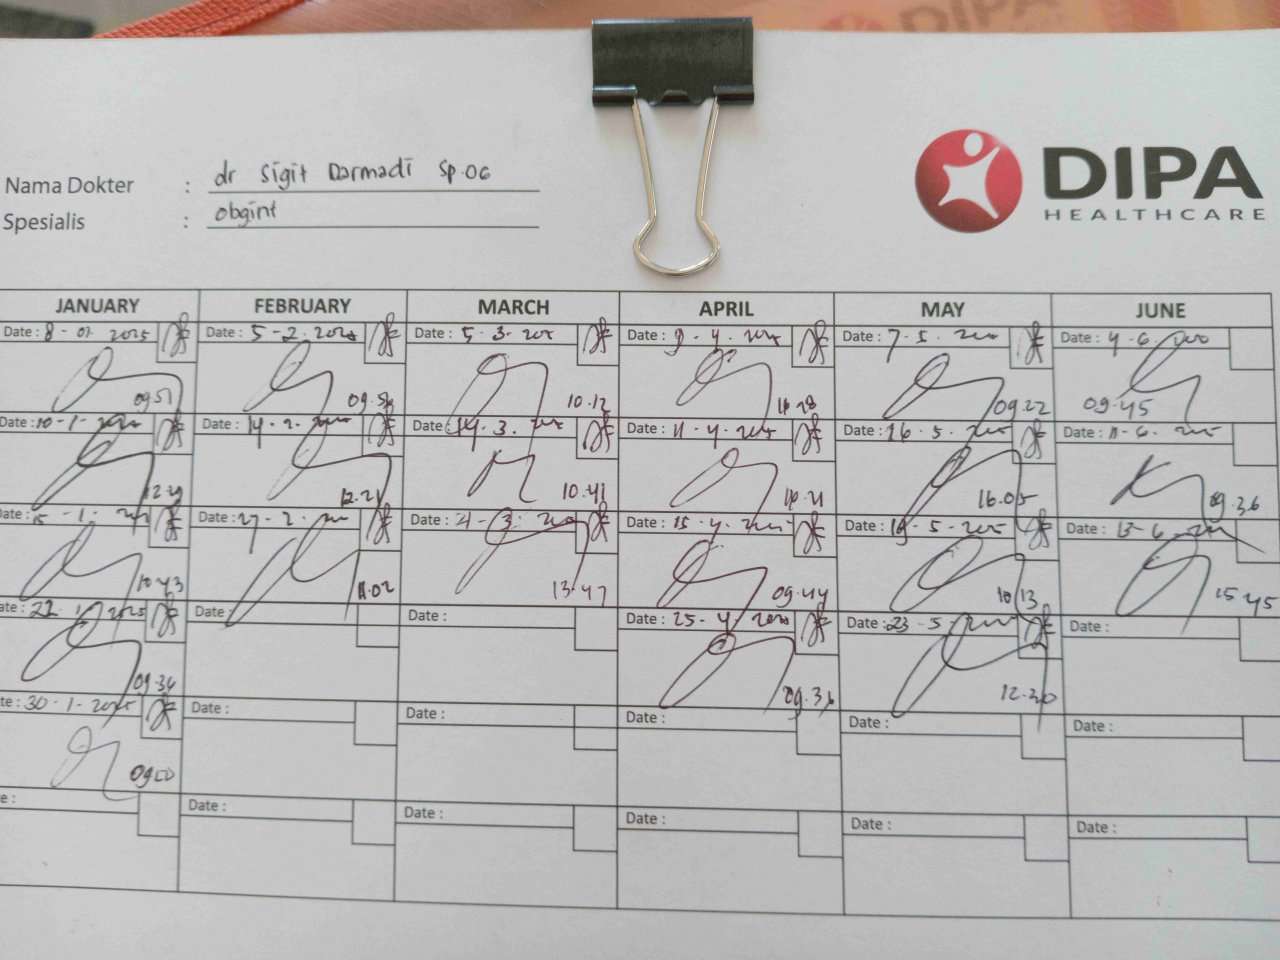 DIPA
HEALTHCARE
Nama Dokter : dr Sigit Darmadi Sp.OG
Spesialis : obgint
JANUARY FEBRUARY MARCH APRIL MAY JUNE
Date : 8 - 01 - 2025 Date : 5 - 2 - Date : 5 - 3 - Date : 9 - 4 - Date : 7 - 5 - Date : 4 - 6 -
09.51 09.54 10.12 09.22 09.45
Date : 10 - 1 - Date : 14 - 2 - Date : 14 - 3 - Date : 11 - 4 - Date : 16 - 5 - Date : 11 - 6 -
12.29 12.21 10.41 16.05 09.36
Date : 15 - 1 - Date : 27 - 2 - Date : 21 - 3 - Date : 15 - 4 - Date : 19 - 5 - Date : 13 - 6 -
10.43 11.02 13.47 09.44 10.13 15.45
Date : 22 - 1 - 2025 Date : Date : Date : 25 - 4 - Date : 23 - 5 - Date :
09.34 09.36 12.20
Date : 30 - 1 - 2025 Date : Date : Date : Date : Date :
09.00
Date : Date : Date : Date : Date : Date :